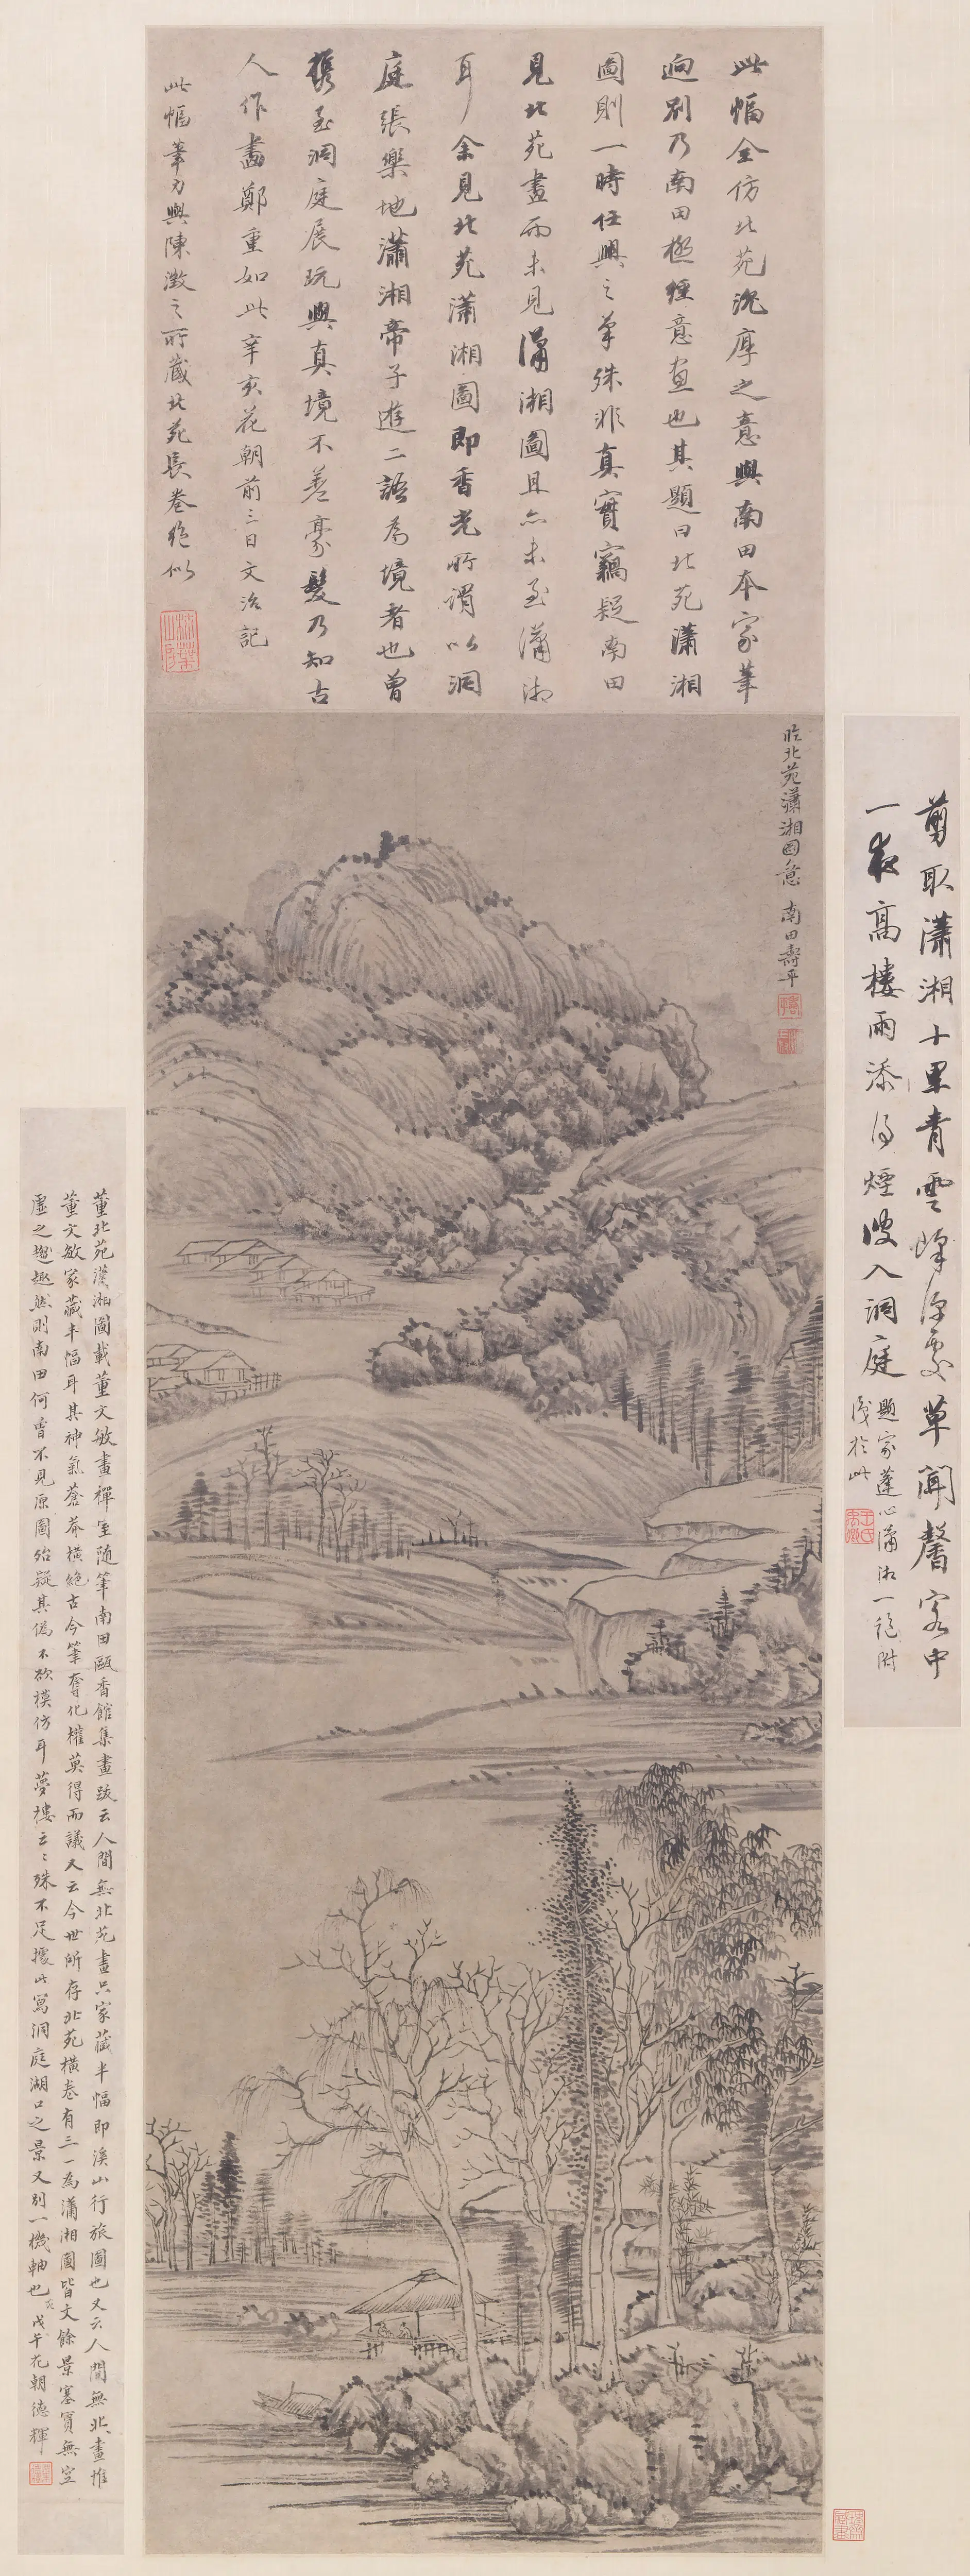 此幅全仿北苑沉厚之意與南田本家筆
迥別乃南田極經意畫也其題曰北苑瀟湘
圖則一時任興之筆殊非真實竊疑南田
見北苑畫而未見瀟湘圖且亦未至瀟湘
耳余見北苑瀟湘圖即香光所謂以洞
庭張樂地瀟湘帝子遊二語為境者也曾
攜至洞庭展玩與真境不差豪髮乃知古
人作畫鄭重如此辛亥花朝前三日文治記
此幅筆力與陳澂之所藏北苑長卷絕似
臨北苑瀟湘圖意 南田壽平
剪取瀟湘十里青雲峰深處草閣馨客中
一夜高樓雨添得煙波入洞庭
題家蓬心瀟湘一絕附
識於此
董北苑瀟湘圖載董文敏畫禪室隨筆南田甌香館集畫跋云人間無北苑畫只家藏半幅即溪山行旅圖也又云人間無北畫惟
董文敏家藏半幅耳其神氣蒼莽橫絕古今筆奪化權莫得而議又云今世所存北苑橫卷有三一為瀟湘圖皆丈餘景塞實無空
虛之趣然則南田何嘗不見原圖殆疑其偽不欲模仿耳夢樓云云殊不足據此寫洞庭湖口之景又別一機軸也 戊午花朝德輝